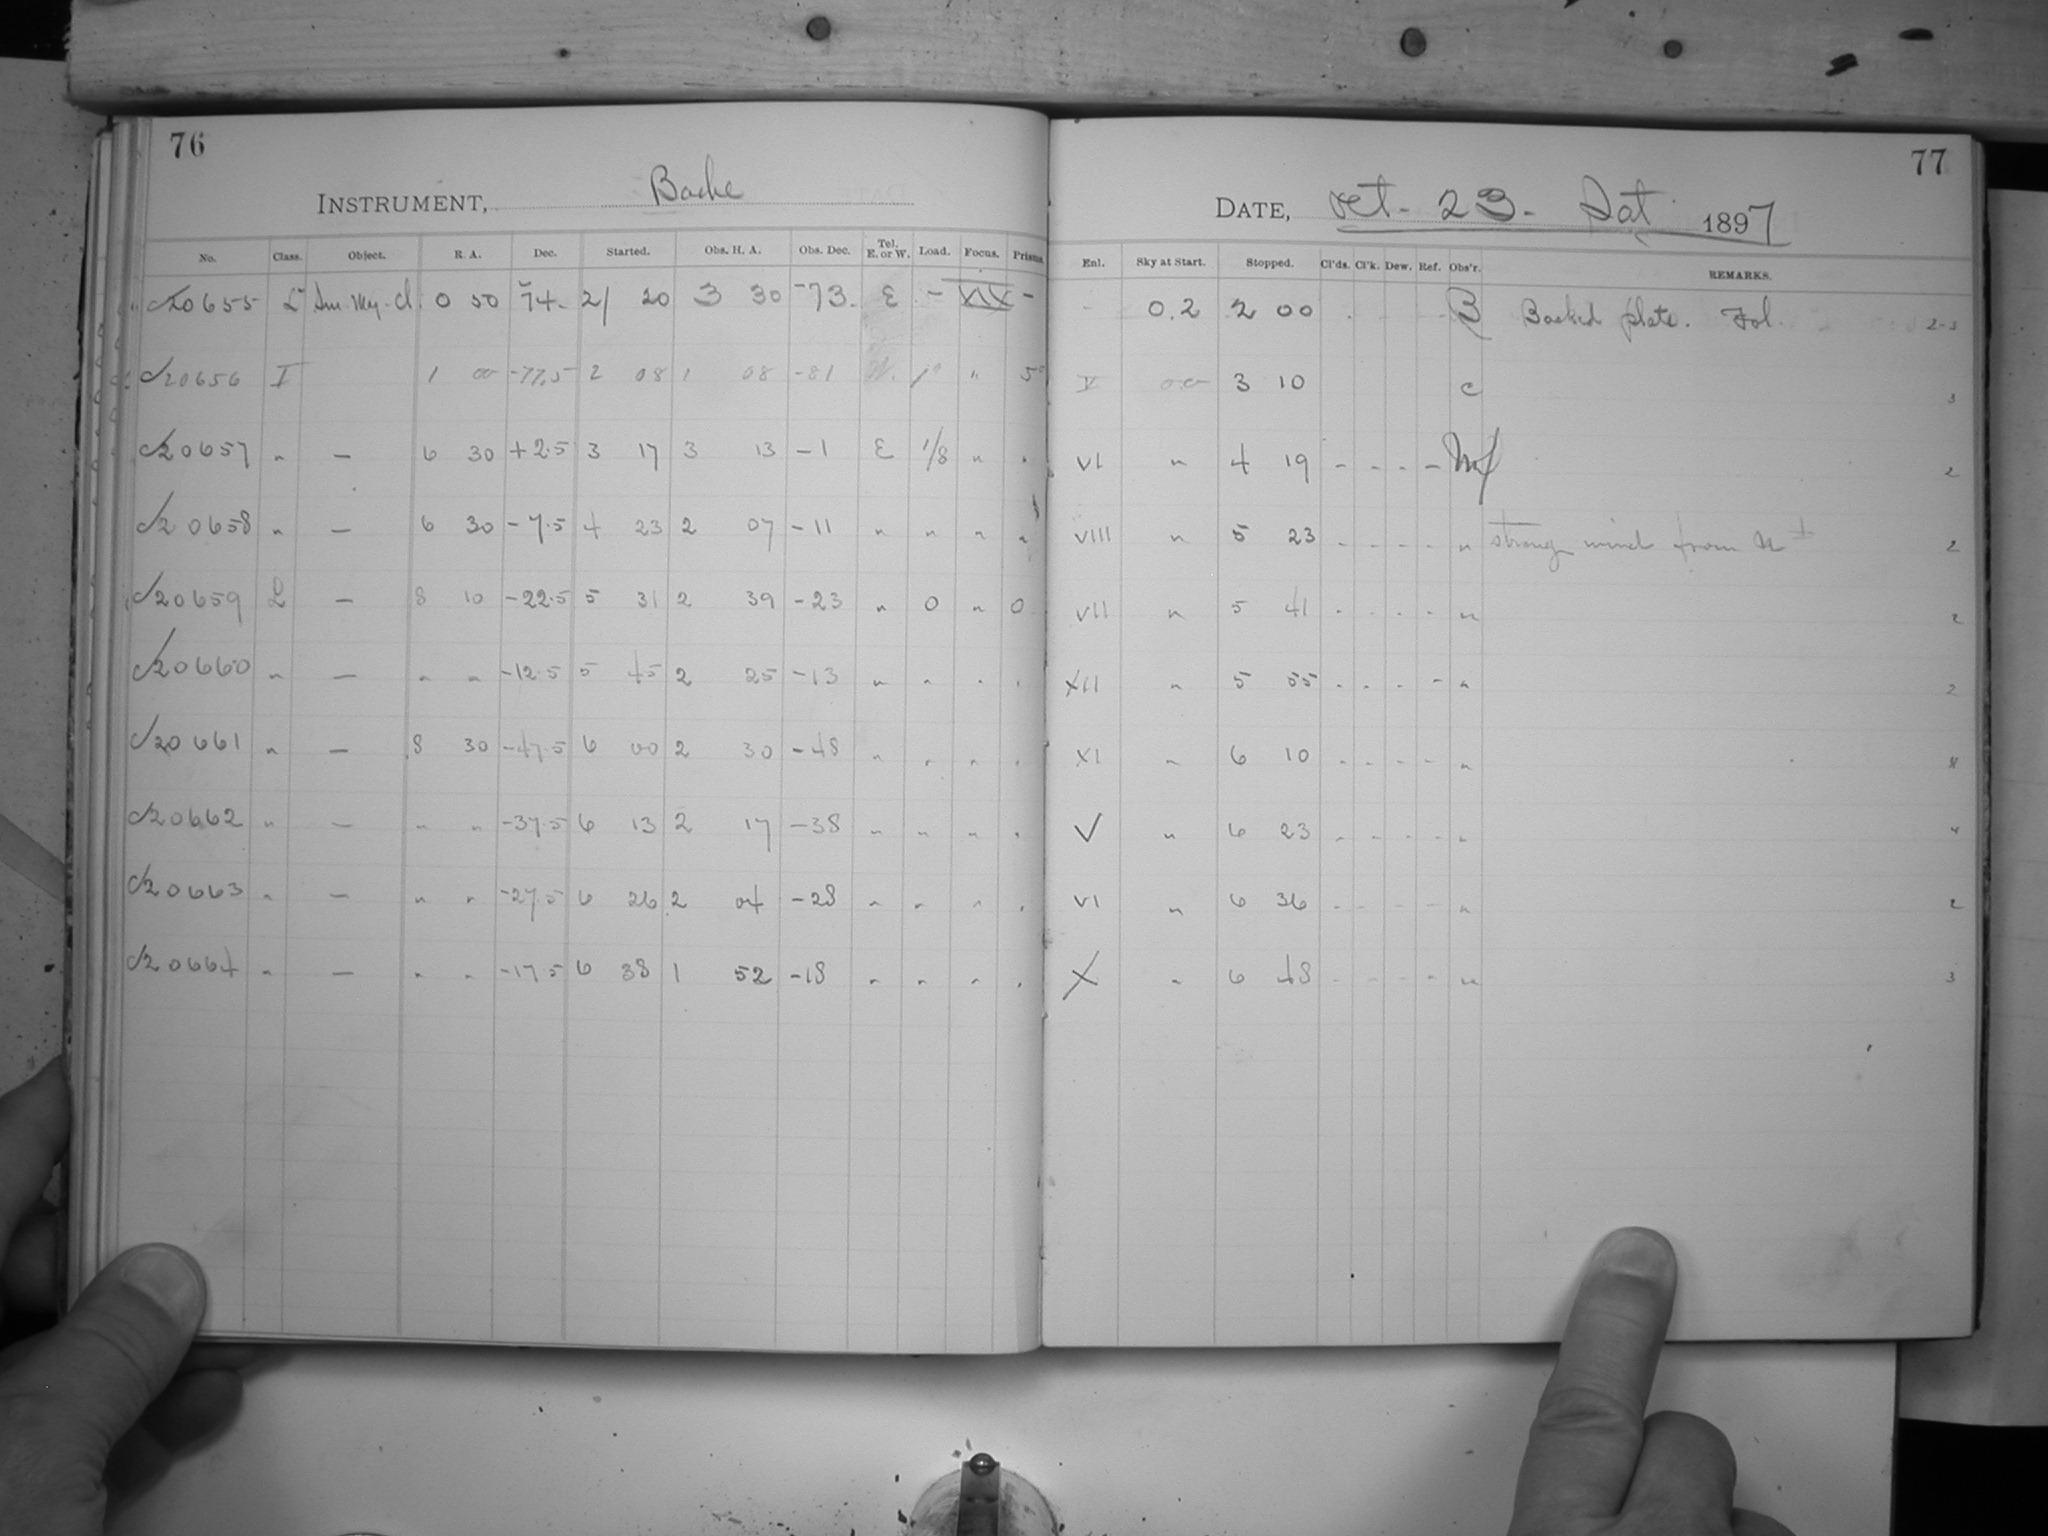 76
INSTRUMENT, Bache
No. Class. Object. R. A. Dec. Started. Obs. H. A. Obs. Dec. Tel. E. or W. Load. Focus. Prisms.
20655 Sm. Mg. Cl. 0 50 -74. 21 20 3 30 -73. E - XIX -
20656 I 1 00 -77.5 2 08 1 08 -81 W. " 5
20657 " — 6 30 +2.5 3 17 3 13 -1 E 1/8 " "
20658 " — 6 30 -7.5 4 23 2 07 -11 " " " "
20659 L — 8 10 -22.5 5 31 2 39 -23 " 0 " 0
20660 " — " " -12.5 5 45 2 25 -13 " " " "
20661 " — 8 30 -47.5 6 00 2 30 -48 " " " "
20662 " — " " -37.5 6 13 2 17 -38 " " " "
20663 " — " " -27.5 6 26 2 04 -28 " " " "
20664 " — " " -17.5 6 38 1 52 -18 " " " "
77
DATE, Oct. 23. Sat. 1897
Enl. Sky at Start. Stopped. Cl'ds. Cl'k. Dew. Ref. Obs'r. REMARKS.
- 0.2 2 00 B Backed plate. Fol. 2-3
V 0.0 3 10 C 3
VI " 4 19 - - - - 2
VIII " 5 23 - - - - " strong wind from 2
VII " 5 41 - - - - " 2
XII " 5 55 - - - - " 2
XI " 6 10 - - - - "
V " 6 23 - - - - " 4
VI " 6 36 - - - - " 2
X " 6 48 - - - - " 3